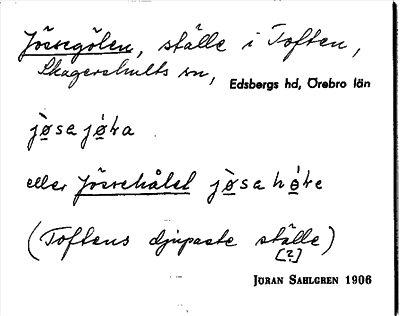 Jössegölen, ställe i Toften,
Skagershults sn, Edsbergs hd, Örebro län
eller Jössehålet
(Toftens djupaste ställe)
[?]
JÖRAN SAHLGREN 1906